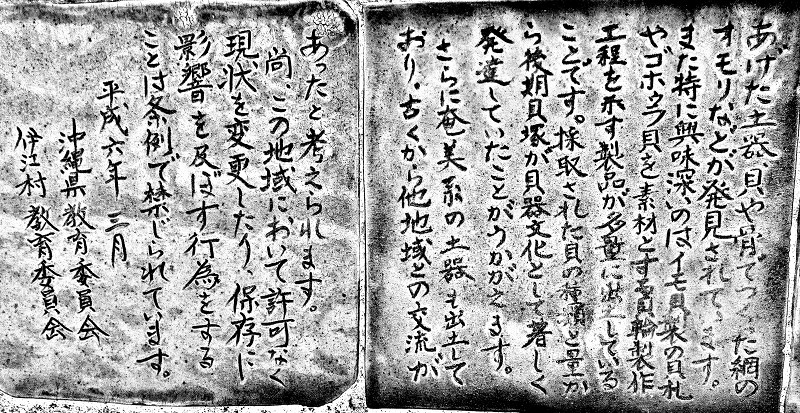 あげた土器、貝や骨でつくった網の
オモリなどが発見されています。
また特に興味深いのはイモ貝製の貝札
やゴホウラ貝を素材とする貝輪製作
工程を示す製品が多量に出土している
ことです。採取された貝の種類と量か
ら後期貝塚が貝器文化として著しく
発達していたことがうかがえます。
さらに奄美系の土器も出土して
おり、古くから他地域との交流が
あったと考えられます。
尚、この地域において許可なく
現状を変更したり、保存に
影響を及ぼす行為をする
ことは条例で禁じられています。
平成六年 三月
沖縄県教育委員会
伊江村教育委員会